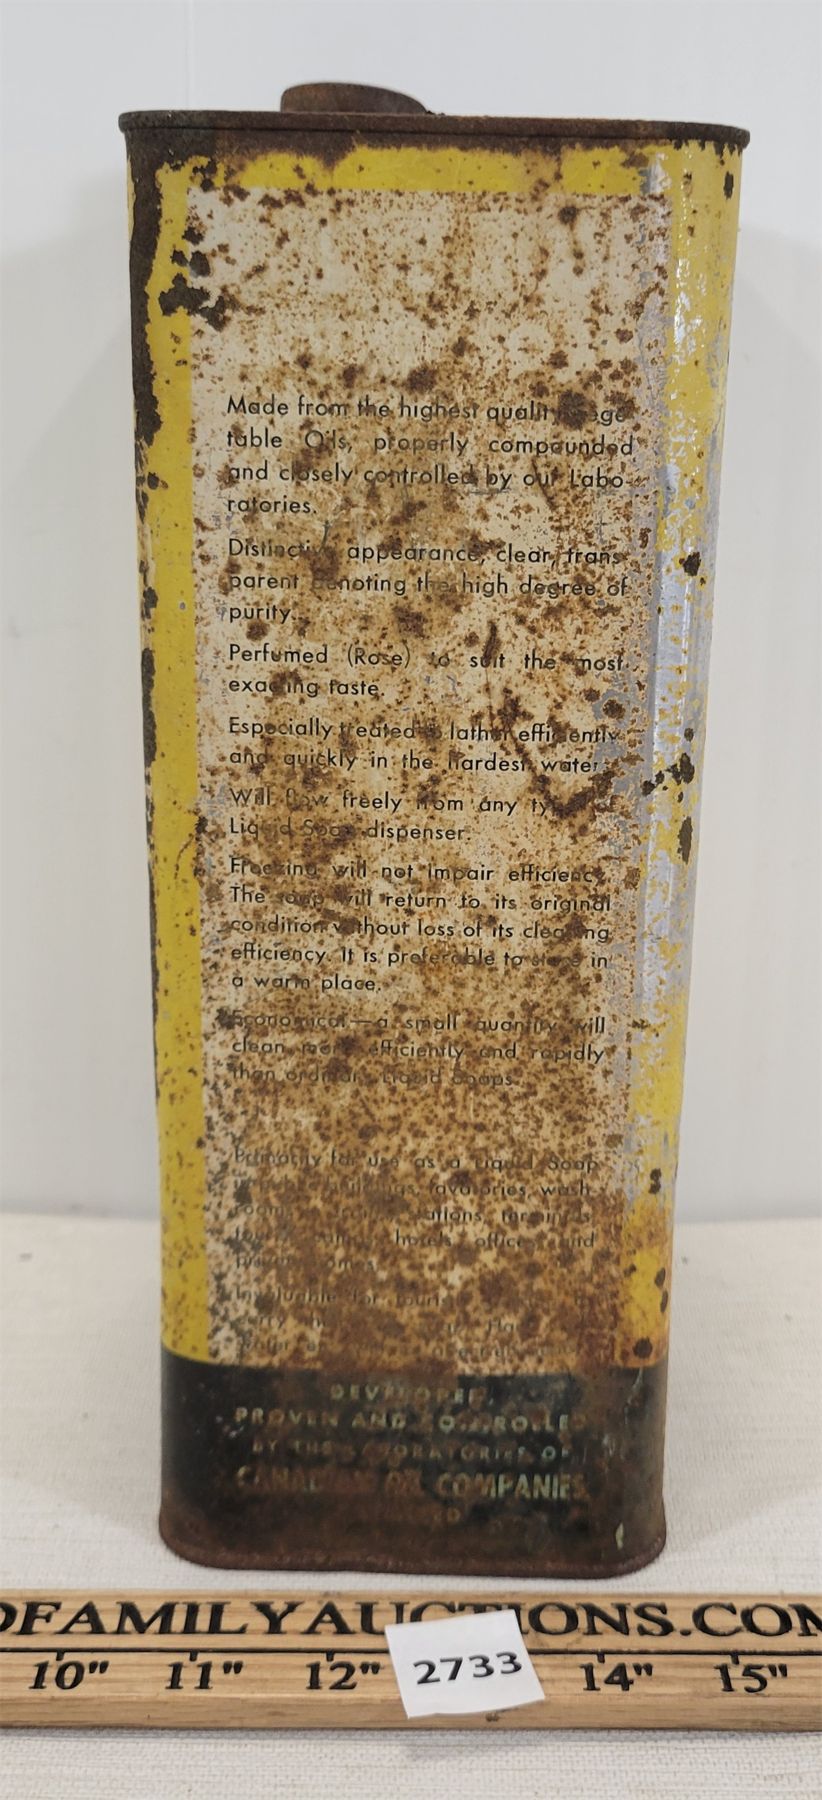 Made from the highest quality Vege-
table Oils, properly compounded
and closely controlled by our Labo-
ratories.
Distinctive appearance, clear, trans-
parent denoting the high degree of
purity.
Perfumed (Rose) to suit the most
exacting taste.
Especially treated to lather efficiently
and quickly in the hardest water.
Will flow freely from any type of
Liquid Soap dispenser.
Freezing will not impair efficiency.
The soap will return to its original
condition without loss of its cleaning
efficiency. It is preferable to store in
a warm place.
Economical—a small quantity will
clean more efficiently and rapidly
than ordinary Liquid Soaps.
Primarily for use as a Liquid Soap
in public buildings, lavatories, wash
rooms, stations, terminals,
tourist camps, hotels, offices and
private homes.
Invaluable for tourists
carry
DEVELOPED,
PROVEN AND CONTROLLED
BY THE LABORATORIES OF
CANADIAN OIL COMPANIES,
LIMITED
FAMILYAUCTIONS.COM
10" 11" 12" 2733 14" 15"